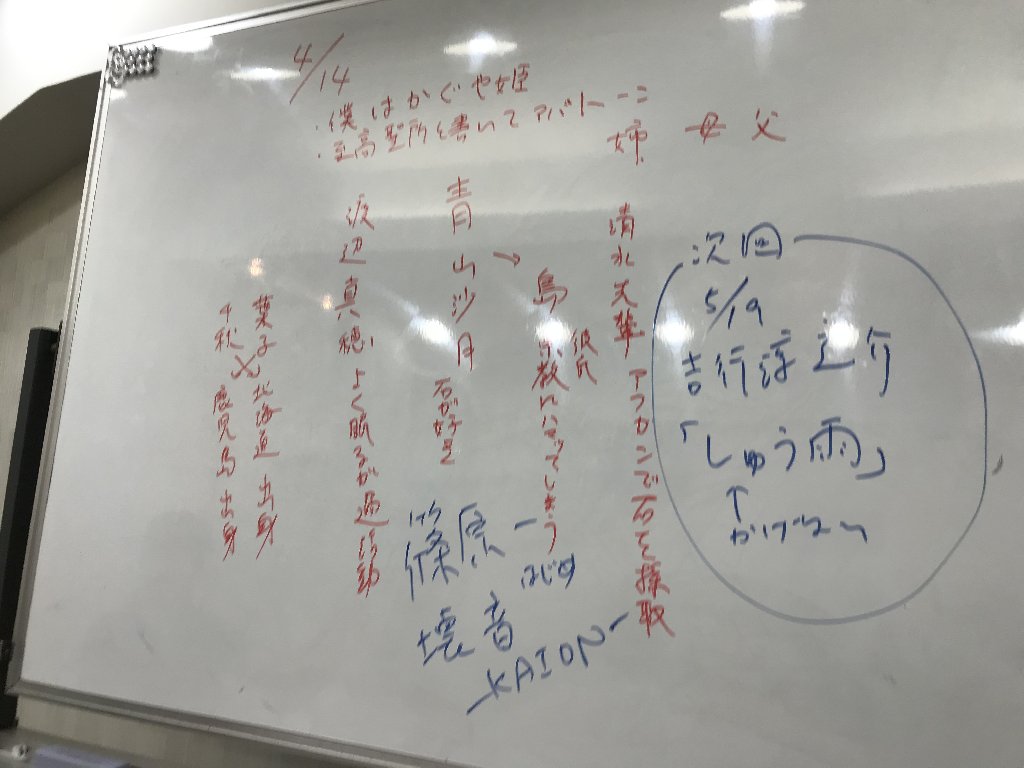 4/14
・僕はかぐや姫
・至高聖所と書いてアバトーン
父
母
姉
清水天華 アフガンで石を採取
彼氏
島 宗教にハマってしまう
青山沙月→ 石が好き
渡辺真穂、よく眠るが過活動
葉子 北海道出身
千秋 鹿児島出身
篠原一
はじめ
壊音
KAION
次回
5/19
吉行淳之介
「しゅう雨」
↑